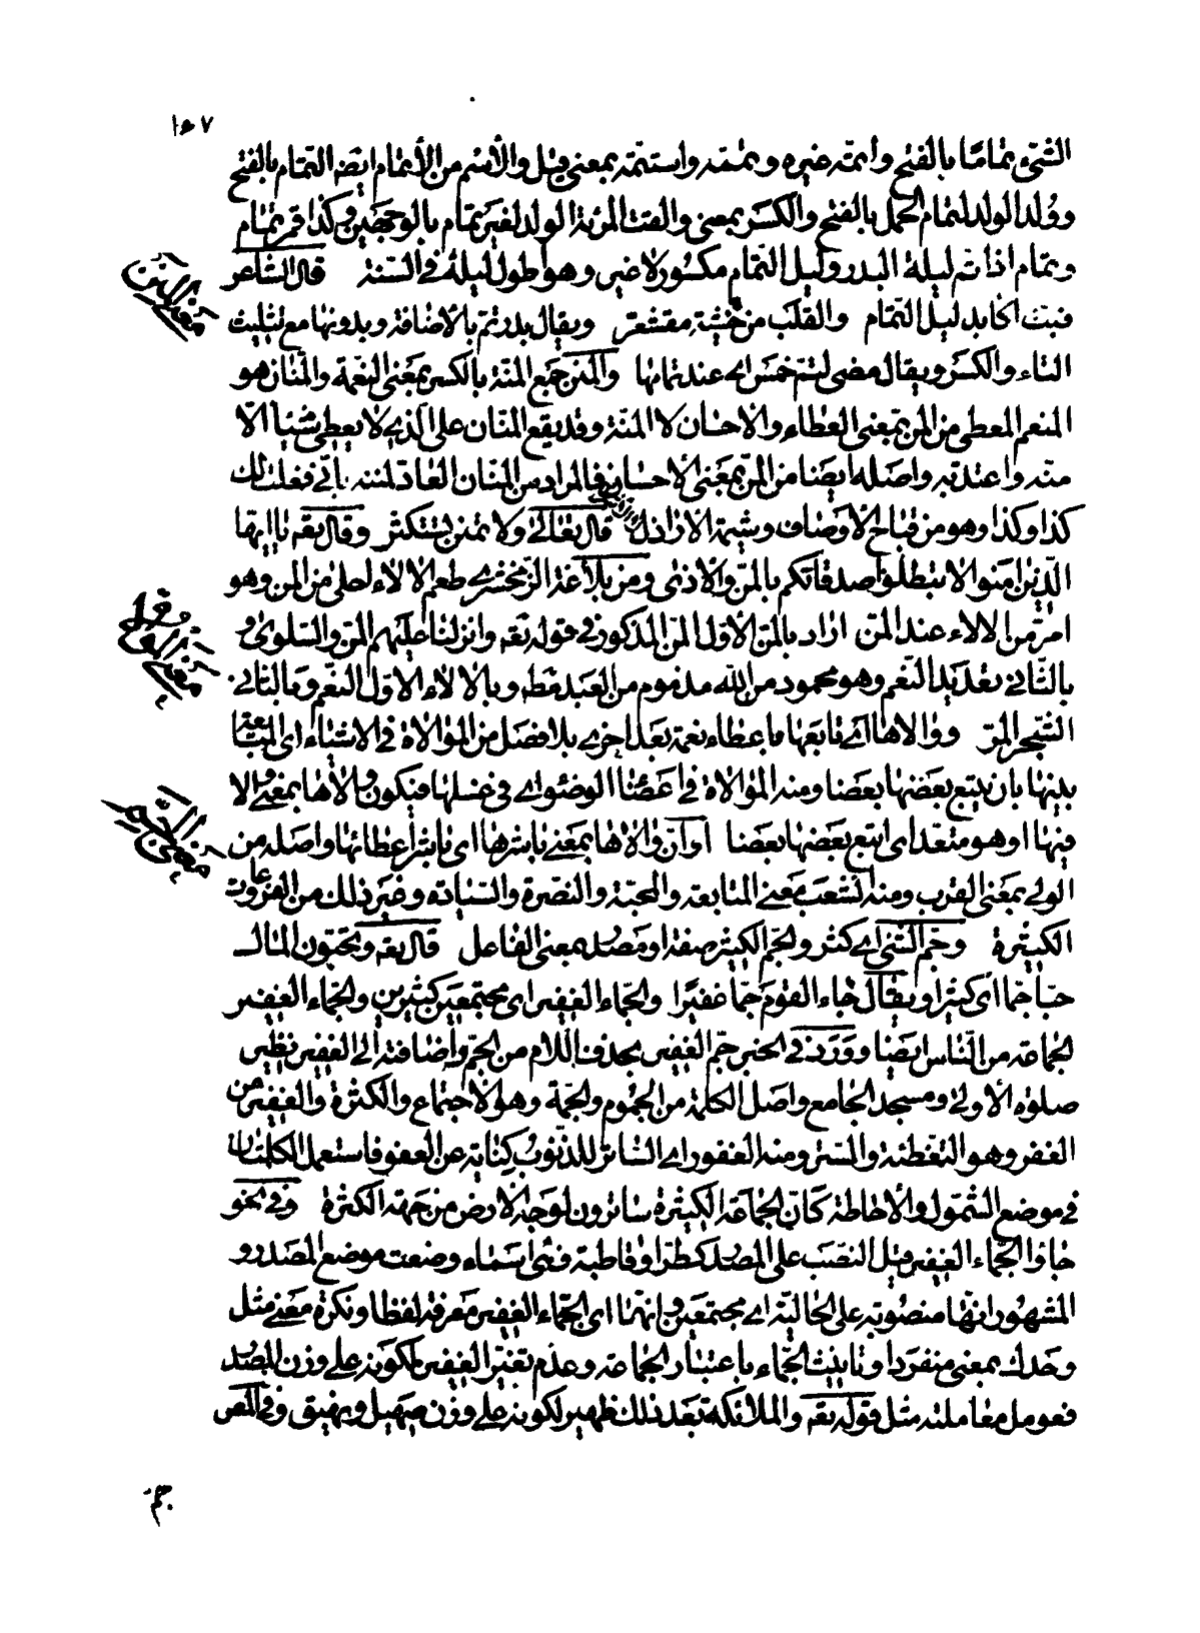 ١٥٧
الشیء تماما بالفتح واتمه غیره وتممه واستتمه بمعنی قیل والاسم من الاتمام ایضه التمام بالفتح
وولد الولد لتمام الحمل بالفتح والکسر بمعنی والقت المرئة الولد لغیر تمام بالوجهین وکذا قمر تمام
وتمام اذا تم لیلة البدر ولیل التمام مکسور لا غیر وهو اطول لیلة فی السنة قال الشاعر
فبت اکابد لیل التمام والقلب من خشیة مقشعر ویقال بدر تم بالاضافة وبدونها مع تثلیث
التاء والکسر ویقال مضی لتم خمس ای عند تمامها والمنن جمع المنة بالکسر بمعنی النعمة والمنان هو
المنعم المعطی من المن بمعنی العطاء والاحسان لا المنة وقد یقع المنان علی الذی لا یعطی شیئا الا
منه واعتد به واصله ایضا من المن بمعنی الاحسان فالمراد من المنان العاد لمننه بانی فعلت لک
کذا وکذا وهو من قبائح الاوصاف وشیمة الاراذل قال تعالی ولا تمنن تستکثر وقال تعه یا ایها
الذین امنوا لا تبطلوا صدقاتکم بالمن والاذی ومن بلاغة الزمخشری طعم الالاء احلی من المن وهو
امر من الالاء عند المن اراد بالمن الاول المن المذکور فی قوله تعه وانزلنا علیهم المن والسلوی و
بالثانی تعدید النعم وهو محمود من الله مذموم من العبد فقط وبالالاء الاول النعم وبالثانی
الشجر المر ووالاها ای تابعها باعطاء نعمة بعد اخری بلا فصل من الموالاة فی الاشیاء ای المتابعة
بینها بان یتبع بعضها بعضا ومنه الموالاة فی اعضاء الوضوء ای فی غسلها فیکون والاها بمعنی والا
فیها او هو متعد ای اتبع بعضها بعضا او ان والاها بمعنی باشرها ای باشر اعطائها واصله من
الولی بمعنی القرب ومنه انشعب معنی المتابعة والمحبة والنصرة والسیادة وغیر ذلک من الفروعات
الکثیرة وجم الشیء ای کثر والجم الکثیر صفة او مصدر بمعنی الفاعل قال تعه وتحبون المال
حبا جما ای کثیرا ویقال جاء القوم جما غفیرا والجماء الغفیر ای مجتمعین کثیرین والجماء الغفیر
الجماعة من الناس ایضا وورد فی الخبر جم الغفیر بحذف اللام من الجم واضافته الی الغفیر نظیر
صلوة الاولی ومسجد الجامع واصل الکلمة من الجموم والجمة وهو الاجتماع والکثرة والغفیر من
الغفر وهو التغطئة والستر ومنه الغفور ای الساتر للذنوب کنایة عن العفو فاستعمل الکلمتان
فی موضع الشمول والاحاطة کان الجماعة الکثیرة ساترون لوجه الارض من جهة الکثرة وفی نحو
جاؤا الجماء الغفیر قیل النصب علی المصدر کطرا وقاطبة فهی اسماء وضعت موضع المصدر و
المشهور انها منصوبة علی الحالیة ای مجتمعین وانهما ای الجماء الغفیر معرفة لفظا ونکرة معنی مثل
وحدک بمعنی منفردا وتانیث الجماء باعتبار الجماعة وعدم تغیر الغفیر لکونه علی وزن المصدر
فعومل معاملته مثل قوله تعه والملائکة بعد ذلک ظهیر لکونه علی وزن صهیل ونهیق وفی النص